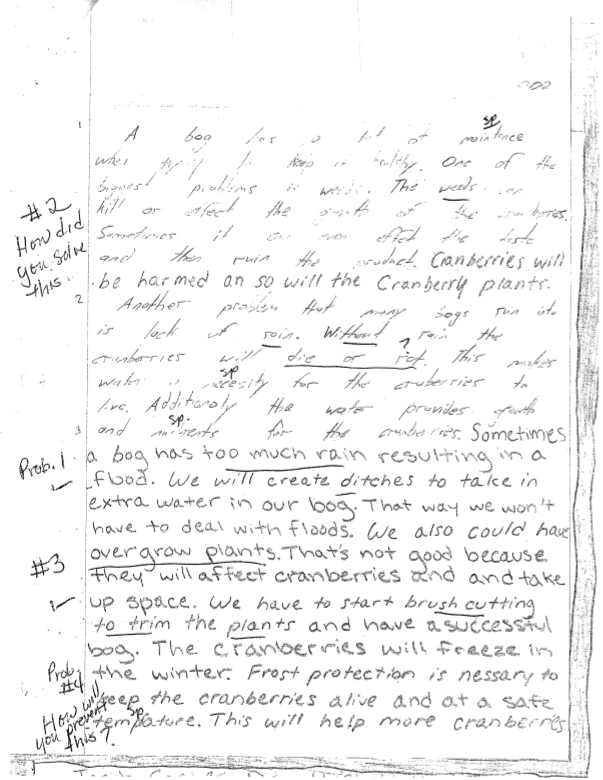 sp
A bog has a lot of maintence
when trying to keep it healthy. One of the
biggest problems is weeds. The weeds can
kill or affect the growth of the cranberries.
Sometimes it can even effect the taste
and then ruin the product. Cranberries will
be harmed an so will the Cranberry plants.
#2
How did
you solve
this.
2
Another problem that many bogs run into
is lack of rain. Without rain the
cranberries will die or rot. This makes
sp
water a necesity for the cranberries to
live. Additionaly the water provides growth
sp.
3
and nutrients for the cranberries. Sometimes
Prob. 1
a bog has too much rain resulting in a
flood. We will create ditches to take in
extra water in our bog. That way we won't
have to deal with floods. We also could have
#3
over grow plants. That's not good because
they will affect cranberries and and take
up space. We have to start brush cutting
to trim the plants and have a successful
bog. The cranberries will freeze in
Prob.
#4
the winter. Frost protection is nessary to
How will
you prevent
this?
keep the cranberries alive and at a safe
sp
tempature. This will help more cranberries